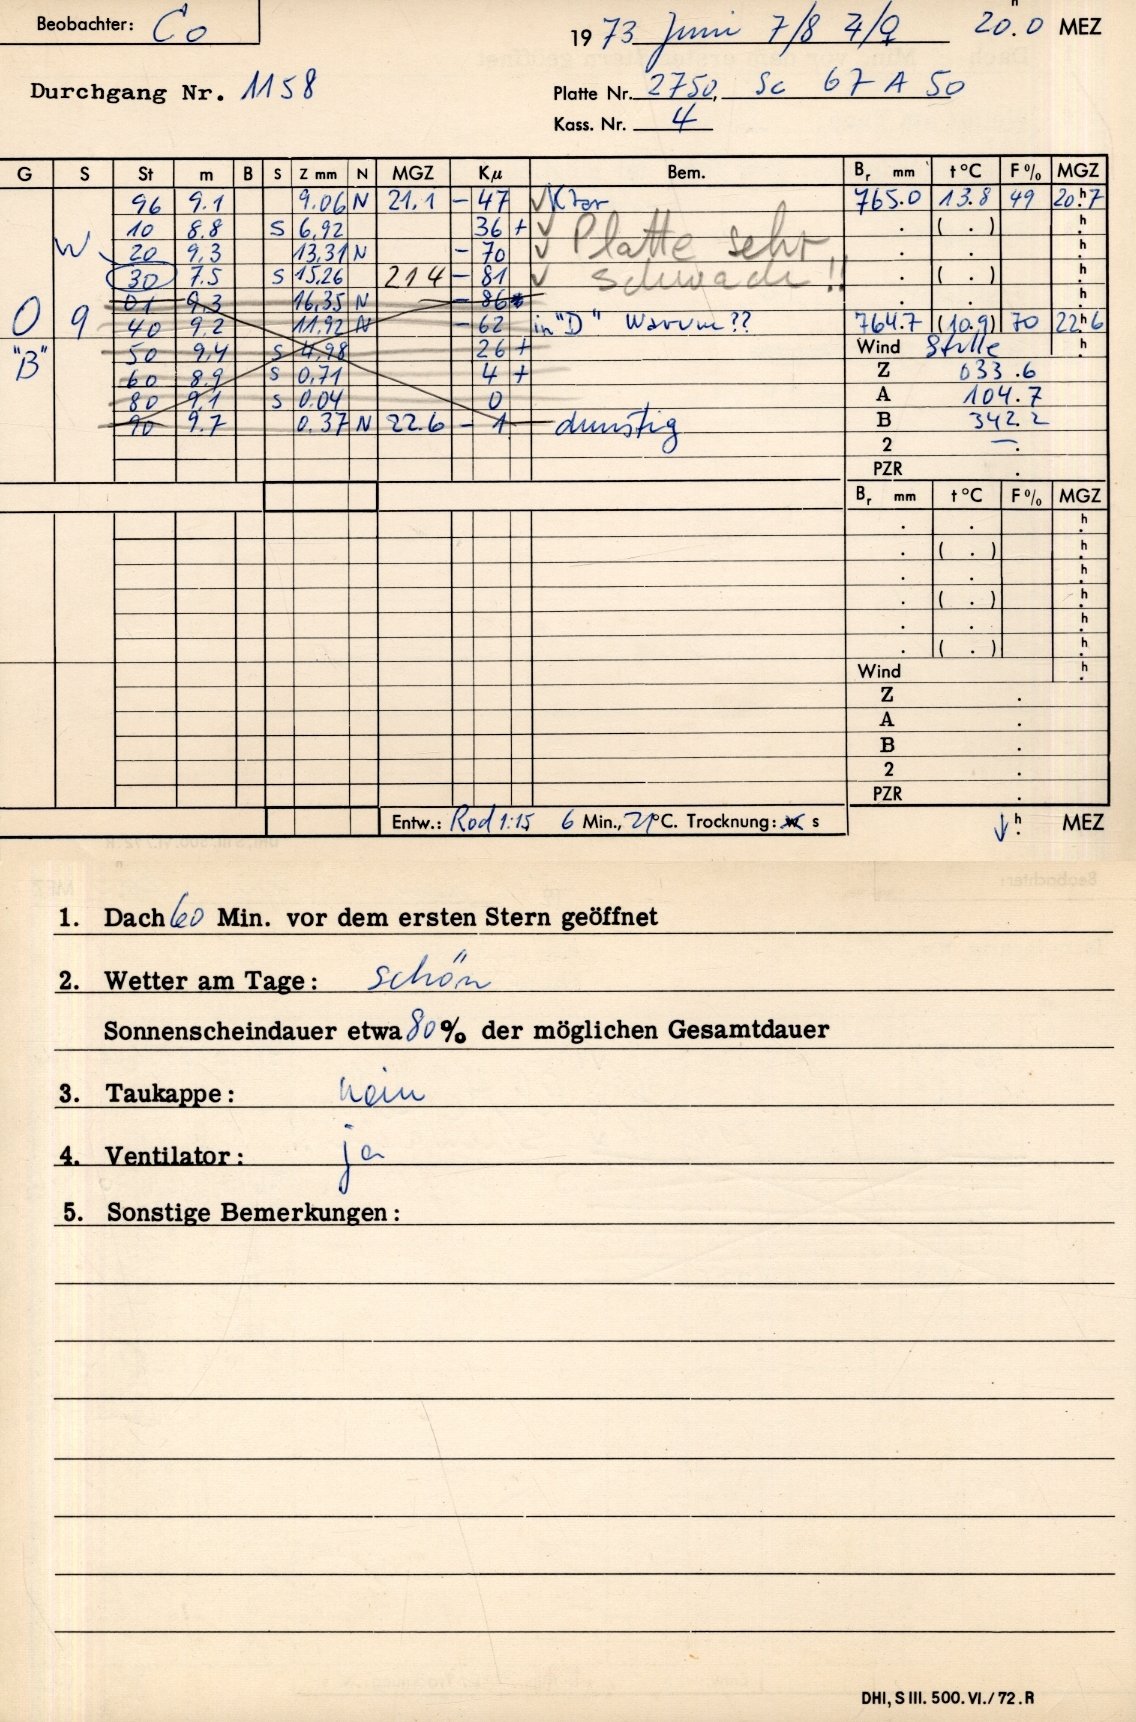 Beobachter: Co
1973 Juni 7/8 4/♀ 20.0 h MEZ
Durchgang Nr. 1158
Platte Nr. 2750, Sc 67 A 50
Kass. Nr. 4
G S St m B S Z mm N MGZ Kμ Bem. Br mm t °C F% MGZ
96 9.1 9.06 N 21.1 - 47 √ Klar 765.0 13.8 49 20h.7
10 8.8 S 6,92 36 + √ . ( . ) h.
W 20 9,3 13,31 N - 70 √ Platte sehr . . h.
30 7.5 S 15,26 21 4 - 81 √ schwach!! . ( . ) h.
01 9.3 16,35 N - 86 . . h.
0 9 40 9.2 11,92 N - 62 in "D" Warum?? 764.7 (10.9) 70 22h.6
"B" 50 9.4 S 4,98 26 + Wind Stille h.
60 8.9 S 0,71 4 + Z 033.6
80 9.1 S 0.04 0 A 104.7
90 9.7 0.37 N 22.6 - 1 dunstig B 342.2
2 —.
PZR .
Br mm t °C F% MGZ
. . h.
. ( . ) h.
. . h.
. ( . ) h.
. . h.
. ( . ) h.
Wind h.
Z .
A .
B .
2 .
PZR .
Entw.: Rod 1:15 6 Min., 21°C. Trocknung: w s ↓ h. MEZ
1. Dach 60 Min. vor dem ersten Stern geöffnet
2. Wetter am Tage: schön
Sonnenscheindauer etwa 80% der möglichen Gesamtdauer
3. Taukappe: nein
4. Ventilator: ja
5. Sonstige Bemerkungen:
DHI, S III. 500. VI./72. R